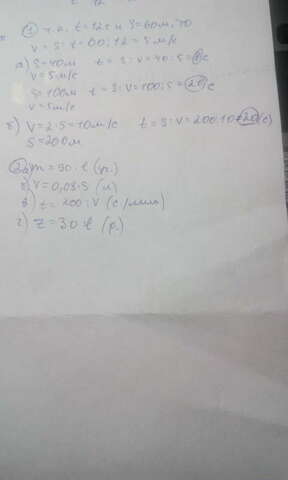 12
① т.к. t=12с и S=60м, то
V = S : t = 60 : 12 = 5 м/с
а) S=40м t = S : V = 40 : 5 = 8 с
V = 5 м/с
S = 100м t = S : V = 100 : 5 = 20 с
V = 5 м/с
б) V = 2 · 5 = 10 м/с t = S : V = 200 : 10 = 20 (с)
S = 200м
② а) m = 50 · t (гр.)
б) V = 0,08 · S (л)
в) t = 200 : V (с/мин)
г) z = 30 t (р.)